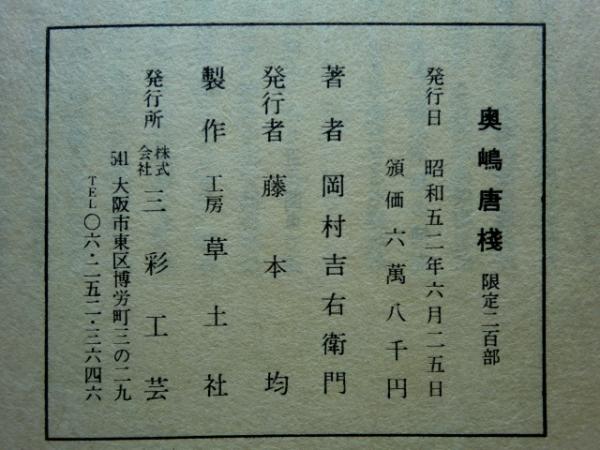 奥嶋唐棧 限定二百部
発行日 昭和五二年六月二五日
頒価六萬八千円
著者 岡村吉右衛門
発行者 藤本均
製作 工房草土社
発行所 株式会社三彩工芸
541 大阪市東区博労町三の二九
TEL 〇六・二五二・三六四六